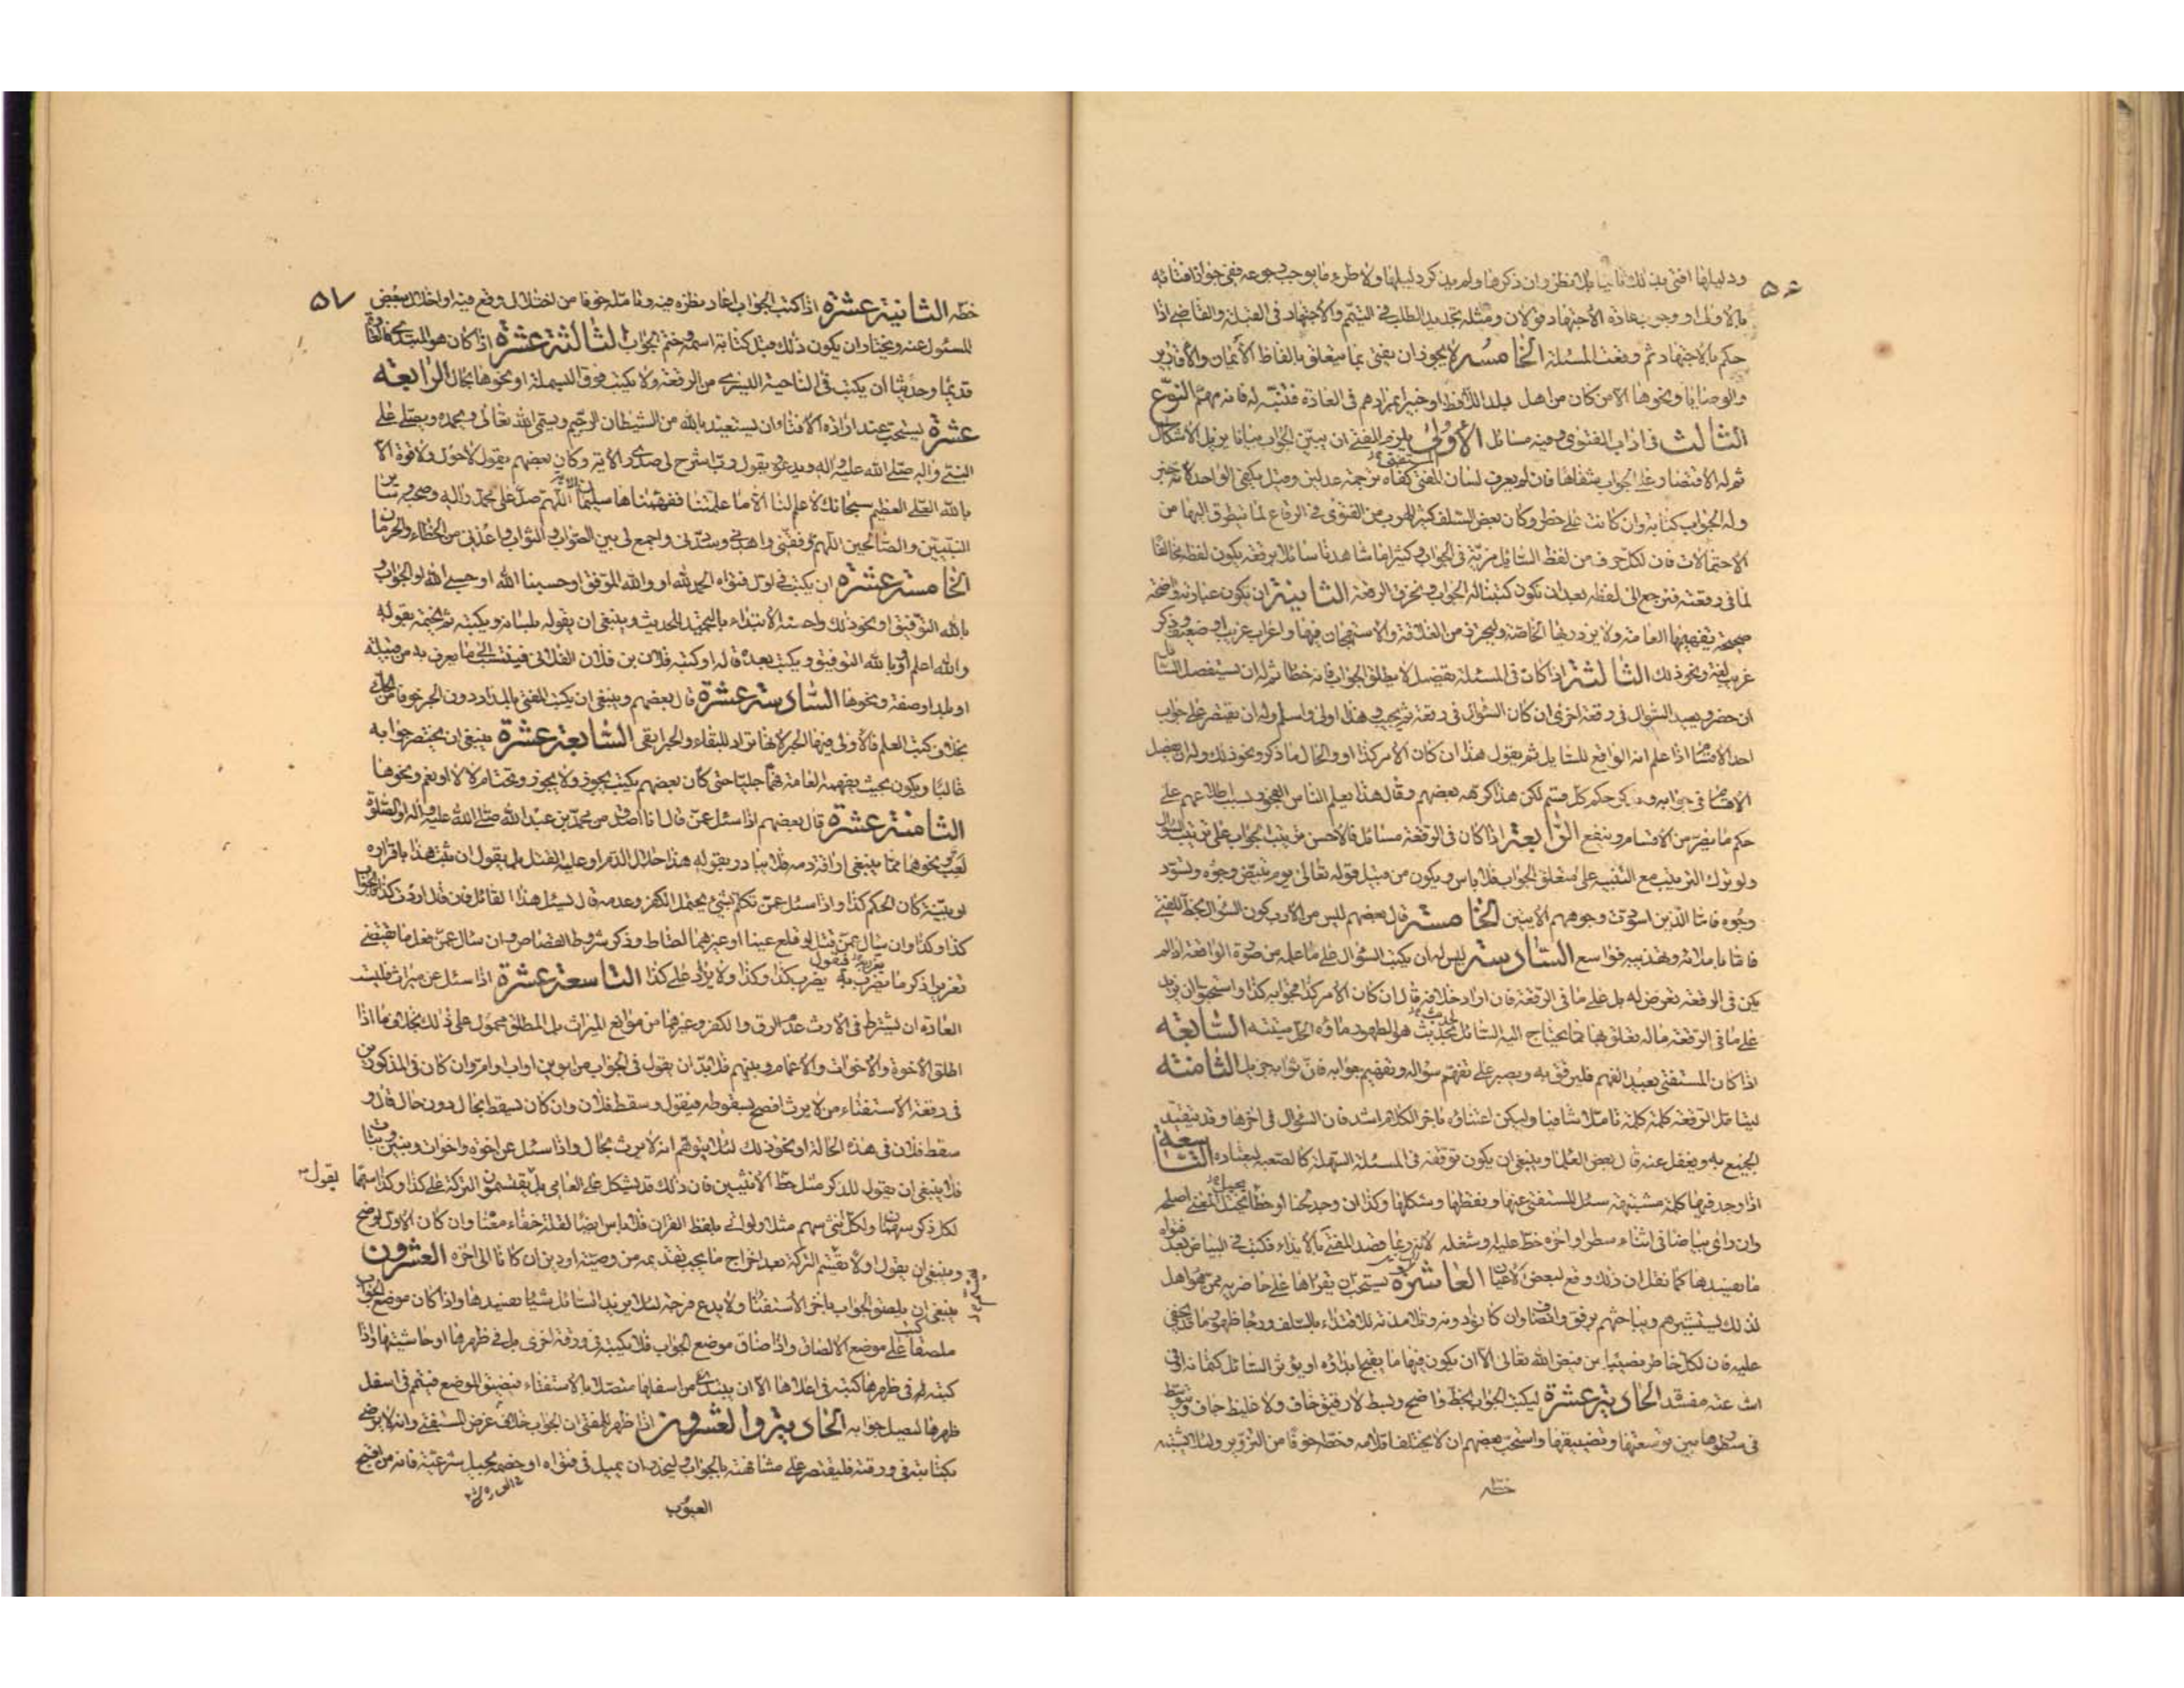 ٥٦
ودليلها افتى بذلك ثانيا بلا نظر وان ذكرها ولم يذكر دليلها ولا طرء ما يوجب رجوعه ففي جواز افتائه
بالاولى او وجوب اعادة الاجتهاد قولان ومثله تجديد الطلب في التيمم والاجتهاد في القبلة والقاضي اذا
حكم بالاجتهاد ثم وقعت المسئلة الخامسة لا يجوز ان يفتي بما يتعلق بالفاظ الأيمان والأقارير
والوصايا ونحوها الا من كان من اهل بلد اللافظ او خبيرا بمرادهم في العادة فتنبه له فانه مهم النوع
الثالث في اداب الفتوى وفيه مسائل الأولى يلزم المفتي ان يبين الجواب بيانا يزيل الاشكال
ثم له الاقتصار على الجواب شفاها فان لم يعرف لسان المفتي كفاه ترجمة عدلين وقيل يكفي الواحد لانه خبر
وله الجواب كتابة وان كانت على خطر وكان بعض السلف كثير الهرب من الفتوى في الرقاع لما يتطرق اليها من
الاحتمالات فان لكل حرف من لفظ السائل مزية في الجواب وكثيرا ما شاهدنا سائلا برقعة يكون لفظه مخالفا
لما في رقعته فنرجع الى لفظه بعد ان نكون كتبنا له الجواب ونخرق الرقعة الثانية ان يكون عبارته واضحة
صحيحة يفهمها العامة ولا يزدريها الخاصة وليحترز من القلاقة والاستهجان فيها واعراب غريب او ضعيف وذكر
غريب لغة ونحو ذلك الثالثة اذا كان في المسئلة تفصيل لا يطلق الجواب فانه خطأ ثم له ان يستفصل السائل
ان حضر ويعيد السؤال في رقعة اخرى ان كان السؤال في رقعة ثم يجيب وهذا اولى واسلم وله ان يقتصر على جواب
احد الاقسام اذا علم انه الواقع للسايل ثم يقول هذا ان كان الأمر كذا او والحال ما ذكر ونحو ذلك وله ان يفصل
الاقسام في جوابه ويذكر حكم كل قسم لكن هذا كرهه بعضهم وقال هذا يعلم الناس الفجور بسبب اطلاعهم على
حكم ما يضر من الاقسام وينفع الرابعة اذا كان في الرقعة مسائل فالاحسن ترتيب الجواب على ترتيب السؤال
ولو ترك الترتيب مع التنبيه على متعلق الجواب فلا باس ويكون من قبيل قوله تعالى يوم تبيض وجوه وتسود
وجوه فاما الذين اسودت وجوههم الايتين الخامسة قال بعضهم ليس من الأدب كون السؤال بخط المفتي
فاما باملائه وتهذيبه فواسع السادسة ليس له ان يكتب السؤال على ما علمه من صورة الواقعة اذا لم
يكن في الرقعة تعرض له بل على ما في الرقعة فان اراد خلافه قال ان كان الأمر كذا فجوابه كذا واستحبوا ان يزيد
على ما في الرقعة ما له تعلق بها مما يحتاج اليه السائل لحديث هو الطهور ماؤه الحل ميتته السابعة
اذا كان المستفتي بعيد الفهم فليرفق به ويصبر على تفهم سؤاله وتفهيم جوابه فان ثوابه جزيل الثامنة
ليتأمل الرقعة كلمة كلمة تأملا شافيا وليكن اعتناؤه بآخر الكلام اشد فان السؤال في اخرها وقد يتقيد
الجميع به ويغفل عنه قال بعض العلماء وينبغي ان يكون توقفه في المسئلة السهلة كالصعبة ليعتاده التاسعة
اذا وجد فيها كلمة مشتبهة سئل المستفتي عنها ونقطها وشكلها وكذا ان وجد لحنا او خطأ يحيل المعنى اصلحه
وان رأى بياضا في اثناء سطر او اخره خط عليه وشغله لانه ربما قصد المفتي بالايذاء فكتب في البياض بعد فتواه
ما يفسدها كما نقل ان ذلك وقع لبعض الاعيان العاشرة يستحب ان يقراها على حاضريه ممن هو اهل
لذلك ليستشيرهم ويباحثهم برفق وانصاف وان كانوا دونه وتلامذته للاقتداء بالسلف ورجاء ظهور ما قد يخفى
عليه فان لكل خاطر نصيبا من فيض الله تعالى الا ان يكون فيها ما يقبح ابداؤه او يؤثر السائل كتمانه او في
اشاعته مفسدة الحادية عشرة ليكتب الجواب بخط واضح وسط لا رقيق خاف ولا غليظ جاف ويتوسط
في سطورها بين توسيعها وتضييقها واستحب بعضهم ان لا يختلف اقلامه وخطه خوفا من التزوير ولئلا يشتبه
خطه
٥٧
خطه الثانية عشرة اذا كتب الجواب اعاد نظره فيه وتامله خوفا من اختلال وقع فيه او اخلال ببعض
المسئول عنه ويختار ان يكون ذلك قبل كتابة اسمه وختم الجواب الثالثة عشرة اذا كان هو المبتدي فالعادة
قديما وحديثا ان يكتب في الناحية اليسرى من الرقعة ولا يكتب فوق البسملة او نحوها بحال الرابعة
عشرة يستحب عند ارادة الافتاء ان يستعيذ بالله من الشيطان الرجيم ويسمي الله تعالى ويحمده ويصلي على
النبي واله صلى الله عليه واله ويدعو ويقول رب اشرح لي صدري الآية وكان بعضهم يقول لا حول ولا قوة الا
بالله العلي العظيم سبحانك لا علم لنا الا ما علمتنا ففهمناها سليمان الاية اللهم صل على محمد واله وصحبه وسائر
النبيين والصالحين اللهم وفقني واهدني وسددني واجمع لي بين الصواب والثواب واعذني من الخطاء والحرمان
الخامسة عشرة ان يكتب في اول فتواه الحمد لله او والله الموفق او حسبنا الله او حسبي الله او الجواب و
بالله التوفيق او نحو ذلك واحسنه الابتداء بالتحميد للحديث وينبغي ان يقوله بلسانه ويكتبه ثم يختمه بقوله
والله اعلم او بالله التوفيق ويكتب بعده قاله او كتبه فلان بن فلان الفلاني فينتسب الى ما يعرف به من قبيلة
او بلد او صفة ونحوها السادسة عشرة قال بعضهم وينبغي ان يكتب المفتي بالمداد دون الحبر خوفا من الحك
بخلاف كتب العلم فالاولى فيها الحبر لانها تراد للبقاء والحبر ابقى السابعة عشرة ينبغي ان يختصر جوابه
غالبا ويكون بحيث يفهمه العامة فهما جليا حتى كان بعضهم يكتب يجوز ولا يجوز وتحت ام لا لا او نعم ونحوها
الثامنة عشرة قال بعضهم اذا سئل عمن قال انا اصدق من محمد بن عبد الله صلى الله عليه واله او الصلوة
لعب ونحوهما مما ينبغي اراقة دمه فلا يبادر بقوله هذا حلال الدم او عليه القتل بل يقول ان ثبت هذا باقراره
او ببينة كان الحكم كذا واذا سئل عمن تكلم بشيء يحتمل الكفر وعدمه قال يسئل هذا القائل فان قال اردت كذا فالجواب
كذا وكذا وان سأل عمن قتل او قلع عينا او غيرهما احتاط وذكر شروط القصاص وان سأل عمن فعل ما يقتضي
تعزيرا ذكر ما يعزر به فيقول يضرب كذا وكذا ولا يزاد على كذا التاسعة عشرة اذا سئل عن ميراث فليست
العادة ان يشترط في الارث عدم الرق والكفر وغيرهما من موانع الميراث بل المطلق محمول على ذلك بخلاف ما اذا
اطلق الأخوة والأخوات والأعمام وبنيهم فلا بد ان يقول في الجواب من ابوين او اب او ام وان كان في المذكورين
في رقعة الاستفتاء من لا يرث افصح بسقوطه فيقول وسقط فلان وان كان يسقط بحال دون حال قال و
سقط فلان في هذه الحالة او نحو ذلك لئلا يتوهم انه لا يرث بحال واذا سئل عن اخوة واخوات وبنين وبنات
فلا ينبغي ان يقول للذكر مثل حظ الانثيين فان ذلك قد يشكل على العامي بل يقول يقتسمون التركة على كذا وكذا سهما
لكل ذكر سهمان ولكل انثى سهم مثلا ولو اتى بلفظ القران فلا باس ايضا لقلة خفاء معناه وان كان الأول اوضح
وينبغي ان يقول اولا تقسم التركة بعد اخراج ما يجب تقديمه من وصية او دين ان كانا الى اخره العشرون
ينبغي ان يلصق الجواب بآخر الاستفتاء ولا يدع فرجة لئلا يزيد السائل شيئا يفسدها واذا كان موضع الجواب
ملصقا كتب على موضع الالصاق واذا ضاق موضع الجواب فلا يكتبه في ورقة اخرى بل في ظهرها او حاشيتها واذا
كتبه في ظهرها كتبه في اعلاها الا ان يبتدئ من اسفلها متصلا بالاستفتاء فيضيق الموضع فيتم في اسفل
ظهرها ليصل جوابه الحادية والعشرون اذا ظهر للمفتي ان الجواب خلاف غرض المستفتي وانه لا يرضى
بكتابته في ورقته فليقتصر على مشافهته بالجواب وليحذر ان يميل في فتواه او خصمه بحيل شرعية فانه من اقبح
العيوب